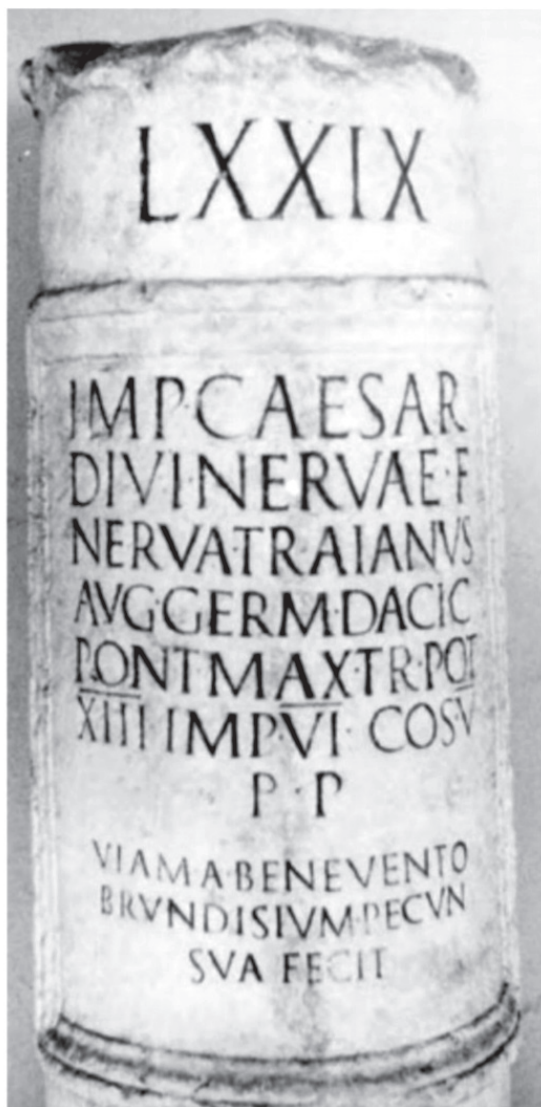 LXXIX
IMP·CAESAR
DIVI·NERVAE·F
NERVA·TRAIANVS
AVG·GERM·DACIC
PONT·MAX·TR·POT
XIII IMP·VI· COS·V
P·P
VIAM·A·BENEVENTO
BRVNDISIVM·PECVN
SVA FECIT